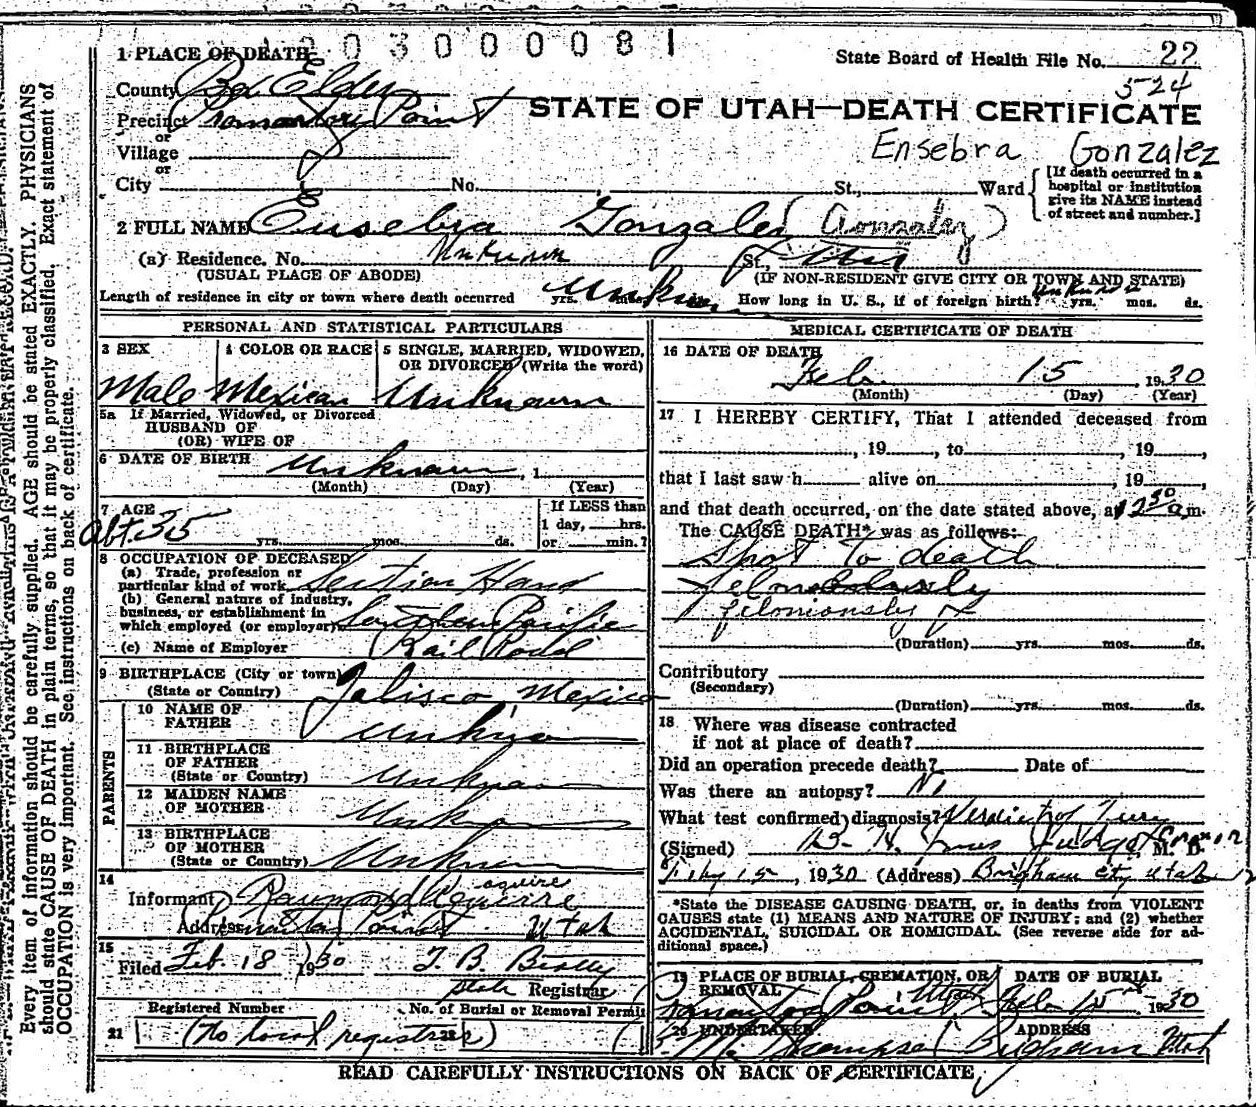 203000081
1 PLACE OF DEATH
State Board of Health File No. 22
524
County Box Elder
Precinct Promontory Point
STATE OF UTAH—DEATH CERTIFICATE
or
Village
Ensebra Gonzalez
or
City No. St., Ward
[If death occurred in a hospital or institution give its NAME instead of street and number.]
2 FULL NAME Eusebia Gonzales (Gonzalez)
(a) Residence. No. Unknown St.,
(USUAL PLACE OF ABODE)
(IF NON-RESIDENT GIVE CITY OR TOWN AND STATE)
Length of residence in city or town where death occurred yrs. mos. Unknown How long in U. S., if of foreign birth? Unknown yrs. mos. ds.
PERSONAL AND STATISTICAL PARTICULARS
3 SEX
Male
4 COLOR OR RACE
Mexican
5 SINGLE, MARRIED, WIDOWED, OR DIVORCED (Write the word)
Unknown
5a If Married, Widowed, or Divorced
HUSBAND OF
(OR) WIFE OF
6 DATE OF BIRTH Unknown, 1
(Month) (Day) (Year)
7 AGE
abt. 35 yrs. mos. ds.
If LESS than
1 day, hrs.
or min.?
8 OCCUPATION OF DECEASED
(a) Trade, profession or
particular kind of work Section Hand
(b) General nature of industry,
business, or establishment in
which employed (or employer) Southern Pacific
(c) Name of Employer Rail Road
9 BIRTHPLACE (City or town)
(State or Country) Jalisco, Mexico
PARENTS
10 NAME OF
FATHER Unknown
11 BIRTHPLACE
OF FATHER
(State or Country) Unknown
12 MAIDEN NAME
OF MOTHER Unknown
13 BIRTHPLACE
OF MOTHER
(State or Country) Unknown
14
aguire
Informant Raymond
Address Point Utah
15
Filed Feb 18 1930 T. B. Beatty
State Registrar
Registered Number No. of Burial or Removal Permit
21 (No local registrar)
MEDICAL CERTIFICATE OF DEATH
16 DATE OF DEATH
Feb. 15, 1930
(Month) (Day) (Year)
17 I HEREBY CERTIFY, That I attended deceased from
, 19 , to , 19 ,
that I last saw h alive on , 19 ,
and that death occurred, on the date stated above, at 12 30 a.m.
The CAUSE DEATH* was as follows:
Shot to death
feloniously
(Duration) yrs. mos. ds.
Contributory
(Secondary)
(Duration) yrs. mos. ds.
18 Where was disease contracted
if not at place of death?
Did an operation precede death? Date of
Was there an autopsy? No
What test confirmed diagnosis? Verdict of Jury
(Signed) B. H. Jones Judge & Coroner, M. D.
Feby 15, 1930 (Address) Brigham City Utah
*State the DISEASE CAUSING DEATH, or, in deaths from VIOLENT
CAUSES state (1) MEANS AND NATURE OF INJURY; and (2) whether
ACCIDENTAL, SUICIDAL OR HOMICIDAL. (See reverse side for ad-
ditional space.)
19 PLACE OF BURIAL, CREMATION, OR
REMOVAL
Promontory Point Utah
DATE OF BURIAL
Feb 15th 1930
20 UNDERTAKER
M. Thompson
ADDRESS
Brigham Utah
READ CAREFULLY INSTRUCTIONS ON BACK OF CERTIFICATE
Every item of information should be carefully supplied. AGE should be stated EXACTLY. PHYSICIANS
should state CAUSE OF DEATH in plain terms, so that it may be properly classified. Exact statement of
OCCUPATION is very important. See instructions on back of certificate.